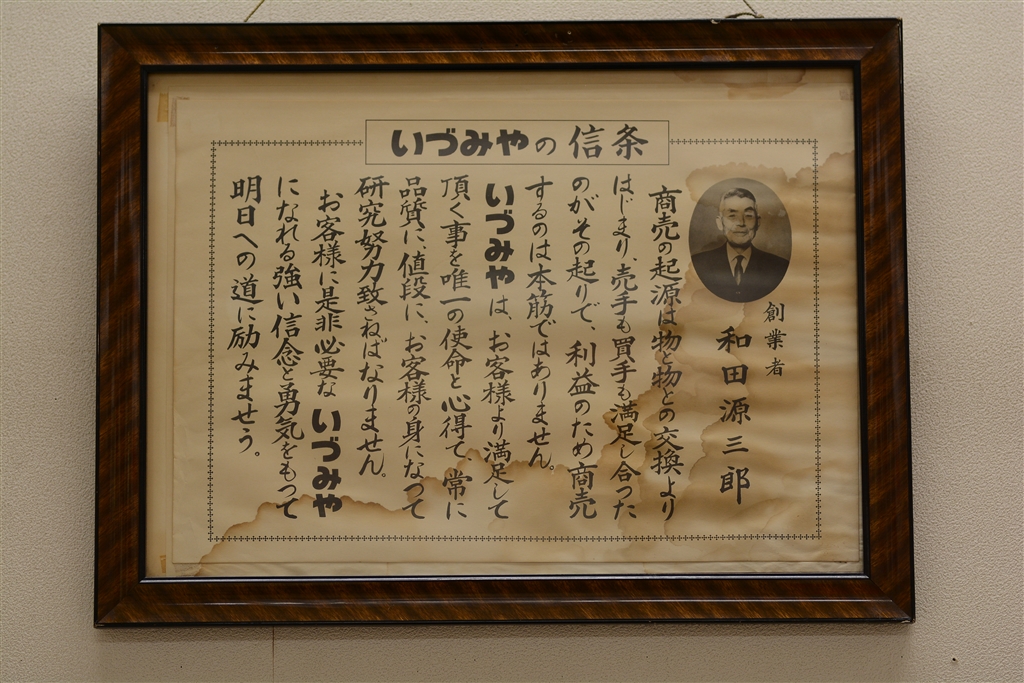 いづみやの信条
創業者
和田源三郎
商売の起源は物と物との交換より
はじまり、売手も買手も満足し合った
のがその起りで、利益のため商売
するのは本筋ではありません。
いづみやは、お客様より満足して
頂く事を唯一の使命と心得て、常に
品質に、値段に、お客様の身になって
研究努力致さねばなりません。
お客様に是非必要ないづみや
になれる強い信念と勇気をもって
明日への道に励みませう。